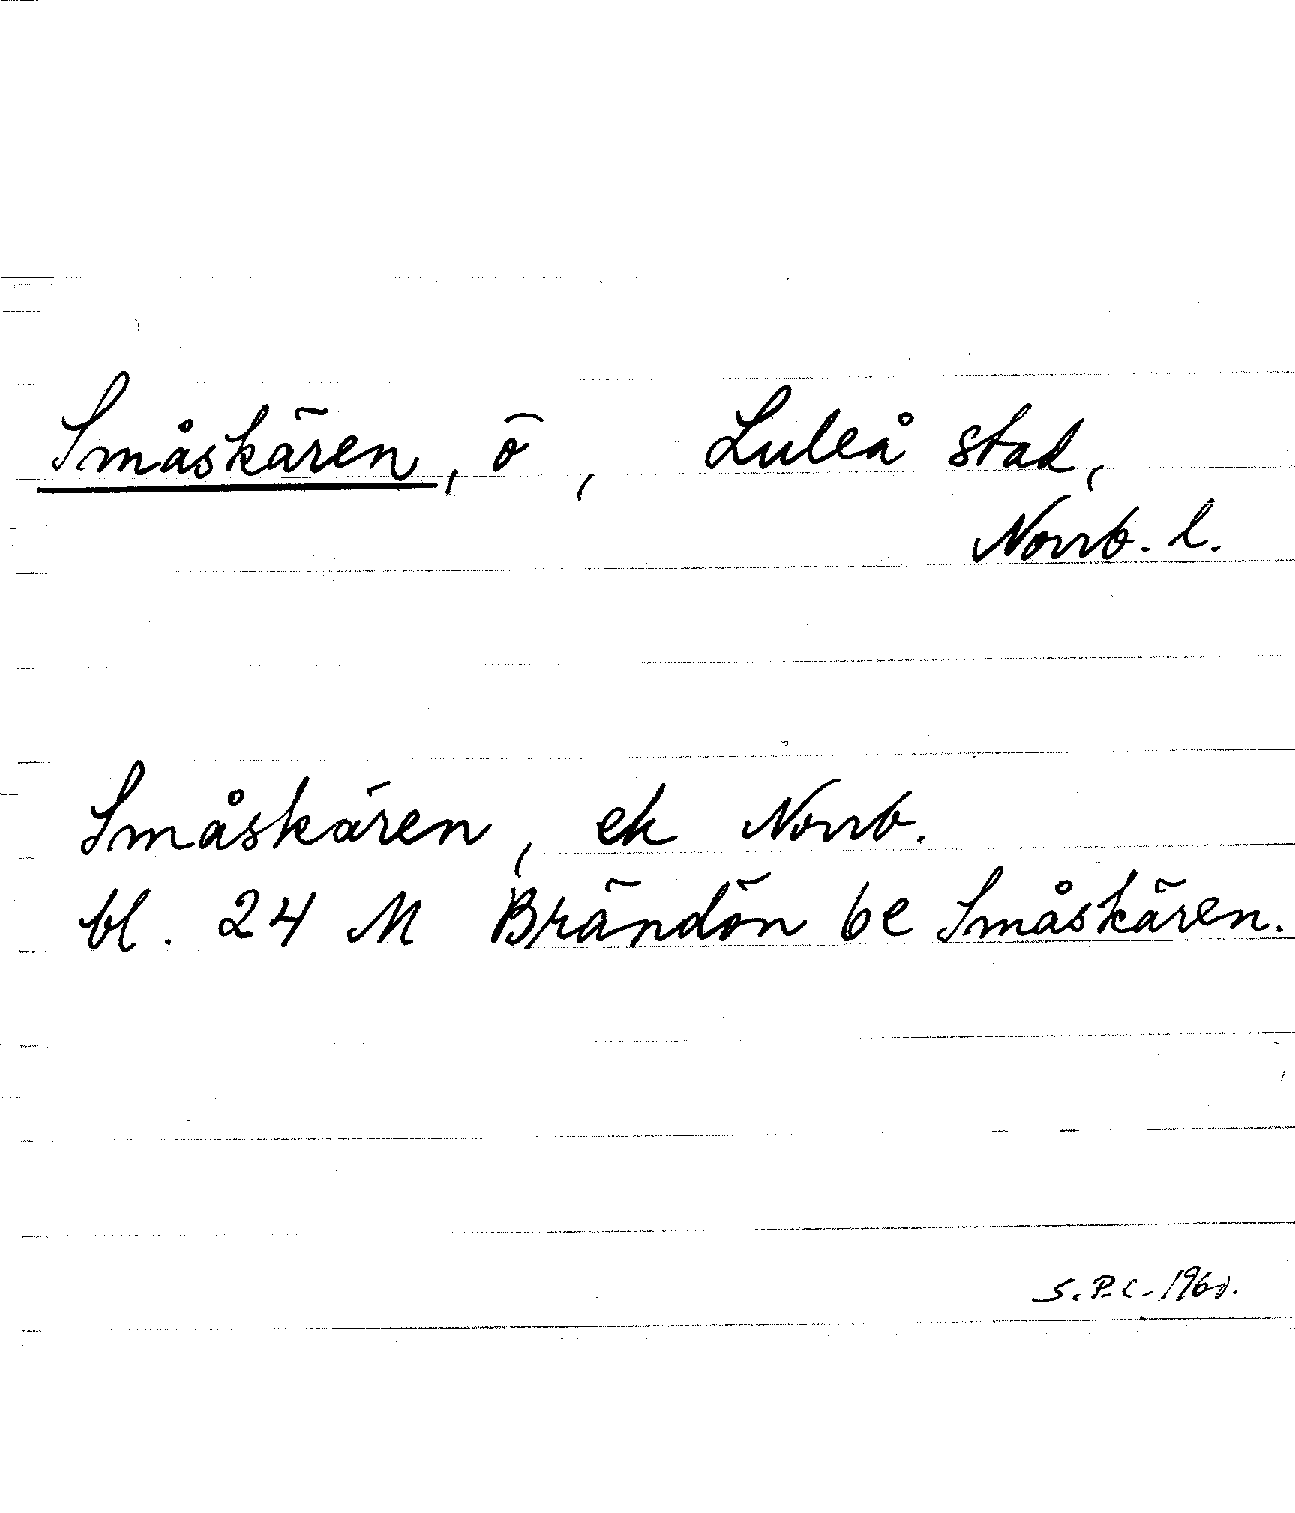 Småskären, ö, Luleå stad,
Norrb. l.
Småskären, ek Norrb.
bl. 24 M Brändön 6e Småskären.
S.P.C. 1960.